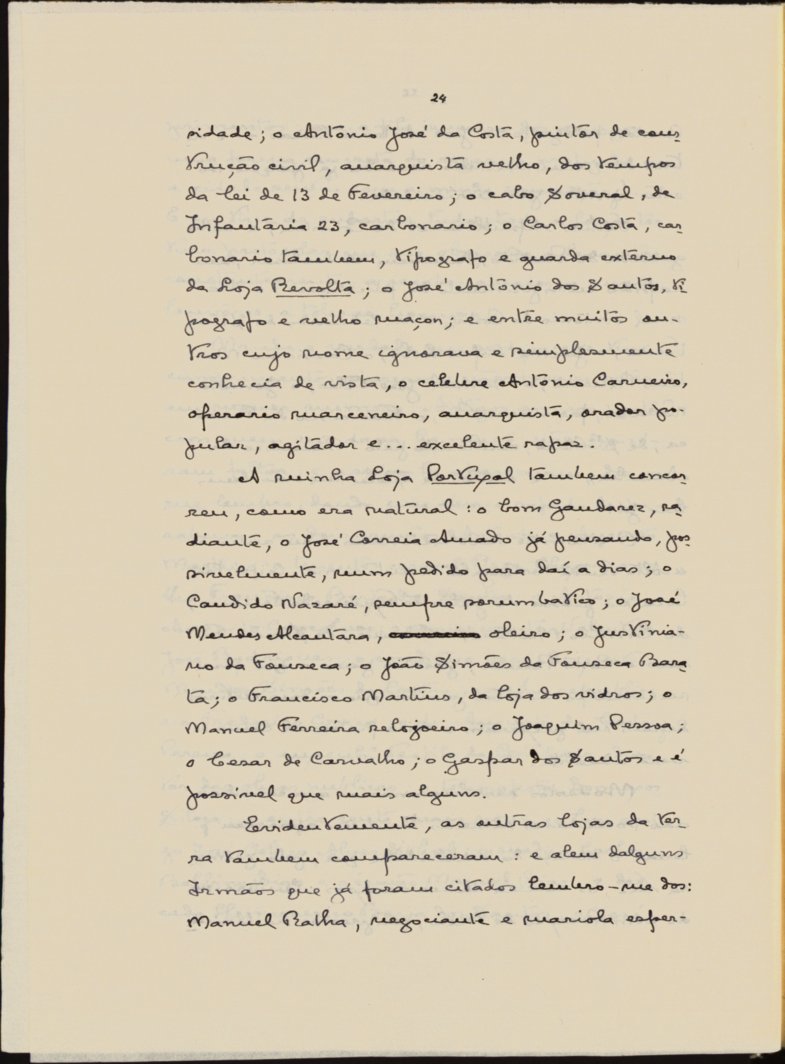 24
sidade; o António José da Costa, pintor de cons
trução civil, anarquista velho, dos tempos
da lei de 13 de Fevereiro; o cabo Soveral, de
Infantaria 23, carbonario; o Carlos Costa, car-
bonario tambem, tipografo e guarda externo
da Loja Revolta; o José António dos Santos, ti-
pografo e velho maçon; e entre muitos ou-
tros cujo nome ignorava e simplesmente
conhecia de vista, o celebre António Carneiro,
operario marceneiro, anarquista, orador po-
pular, agitador e... excelente rapaz.
A minha Loja Portugal tambem concor-
reu, como era natural: o bom Gandarez, ra-
diante, o José Correia Amado já pensando, pos-
sivelmente, num pedido para daí a dias; o
Candido Nazaré, sempre sorumbatico; o José
Mendes Alcantara, oleiro; o Justinia-
no da Fonseca; o João Simões da Fonseca Bara-
ta; o Francisco Martins, da loja dos vidros; o
Manuel Ferreira relojoeiro; o Joaquim Pessoa;
o Cesar de Carvalho; o Gaspar dos Santos e é
possivel que mais alguns.
Evidentemente, as outras lojas da ter-
ra tambem compareceram: e alem dalguns
Irmãos que já foram citados lembro-me dos:
Manuel Ratha, negociante e mariola esper-